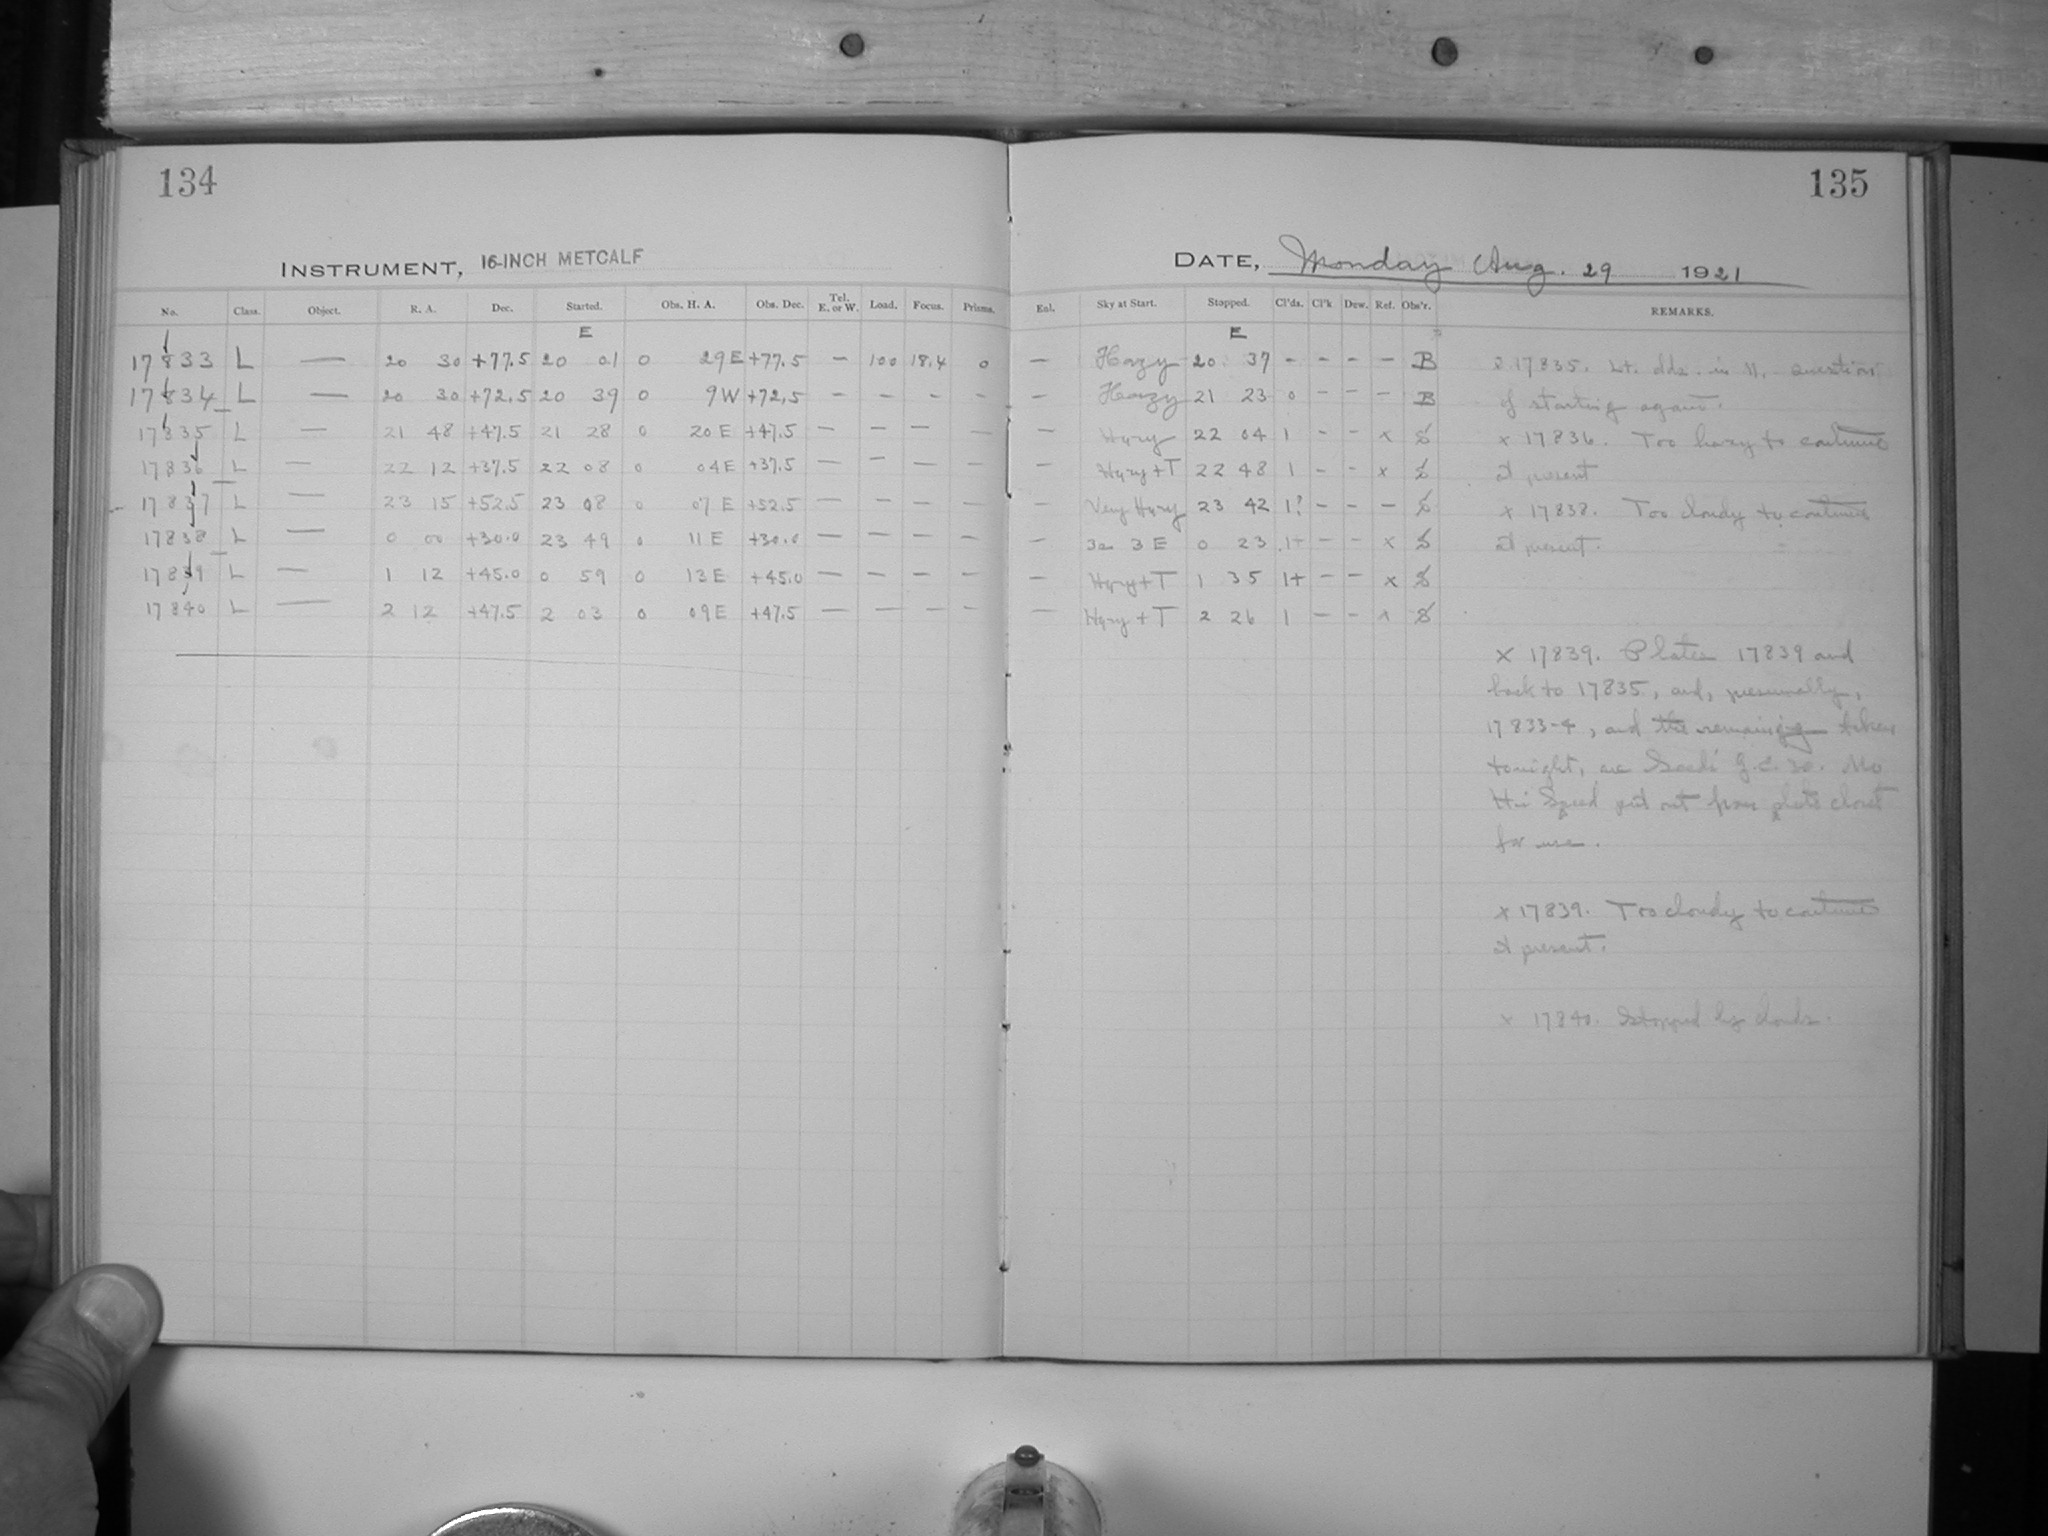 134
135
INSTRUMENT, 16-INCH METCALF
DATE, Monday Aug. 29 1921
No. Class. Object. R. A. Dec. Started. Obs. H. A. Obs. Dec. Tel. E. or W. Load. Focus. Prisms. Enl. Sky at Start. Stopped. Cl'ds. Cl'k Dew. Ref. Obs'r. REMARKS.
E E
17833 L — 20 30 +77.5 20 01 0 29E +77.5 — 100 18.4 0 — Hazy 20 37 - - - - B
17834 L — 20 30 +72.5 20 39 0 9W +72.5 - - - - - Hazy 21 23 0 - - - B
17835 L — 21 48 +47.5 21 28 0 20E +47.5 — — — — — Hazy 22 04 1 - - x S
17836 L — 22 12 +37.5 22 08 0 04E +37.5 — — — — — Hazy+T 22 48 1 - - x S
17837 L — 23 15 +52.5 23 08 0 07 E +52.5 — — — — — Very Hazy 23 42 1? - - - S
17838 L — 0 00 +30.0 23 49 0 11E +30.0 — — — — — 3 E 0 23 1+ - - x S
17839 L — 1 12 +45.0 0 59 0 13E +45.0 — — — — — Hazy+T 1 35 1+ - - x S
17840 L — 2 12 +47.5 2 03 0 09E +47.5 — — — — — Hazy+T 2 26 1 - - x S
17835. Lt. clds. in N. question
of starting again.
x 17836. Too hazy to continue
at present
x 17838. Too cloudy to continue
at present.
x 17839. Plates 17839 and
back to 17835, and, presumably,
17833-4, and the remaining taken
tonight, are Seeds' G.E. 30. No
Hi Speed put out from plate closet
for use.
x 17839. Too cloudy to continue
at present.
x 17840. Stopped by clouds.